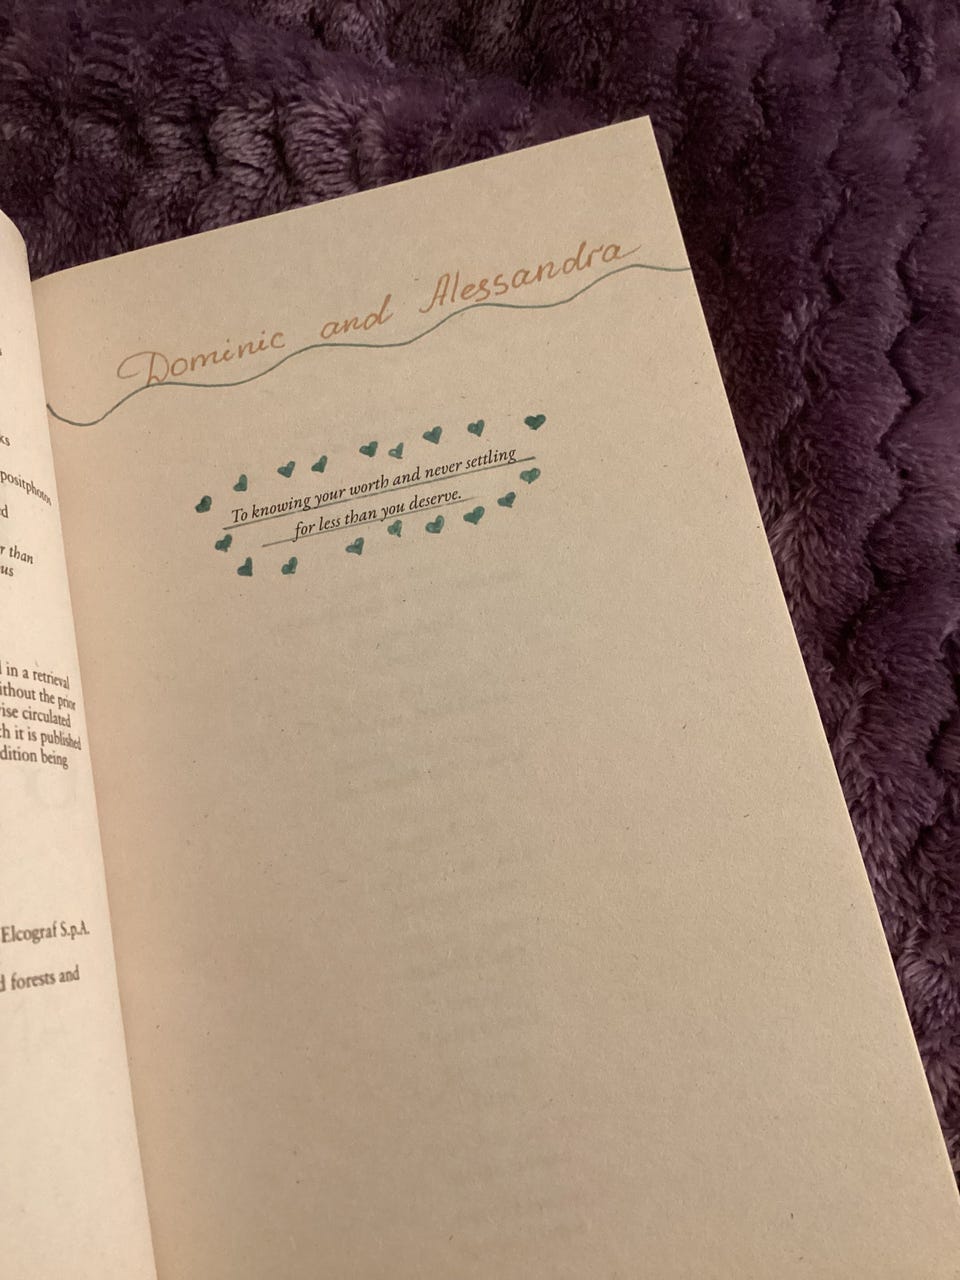 ks
positphotos
d
r than
us
l in a retrieval
ithout the prior
ise circulated
h it is published
dition being
Elcograf S.p.A.
d forests and
Dominic and Alessandra
To knowing your worth and never settling
for less than you deserve.